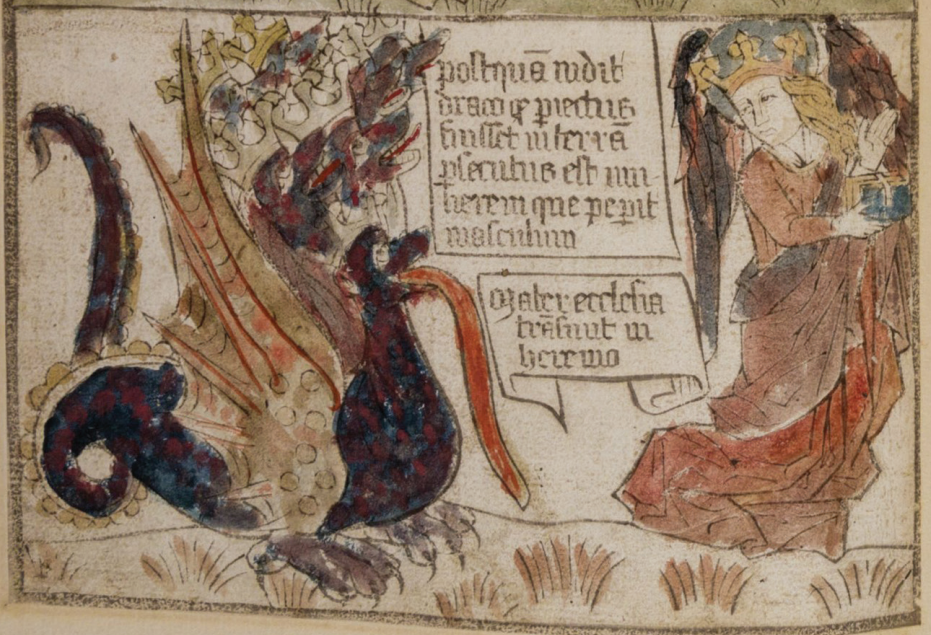 postquā vidit
draco ꝙ ꝓiectus
fuisset in terrā
ꝑsecutus est mu-
lierem que peꝑit
masculum
Mater ecclesia
trāsiuit in
heremo